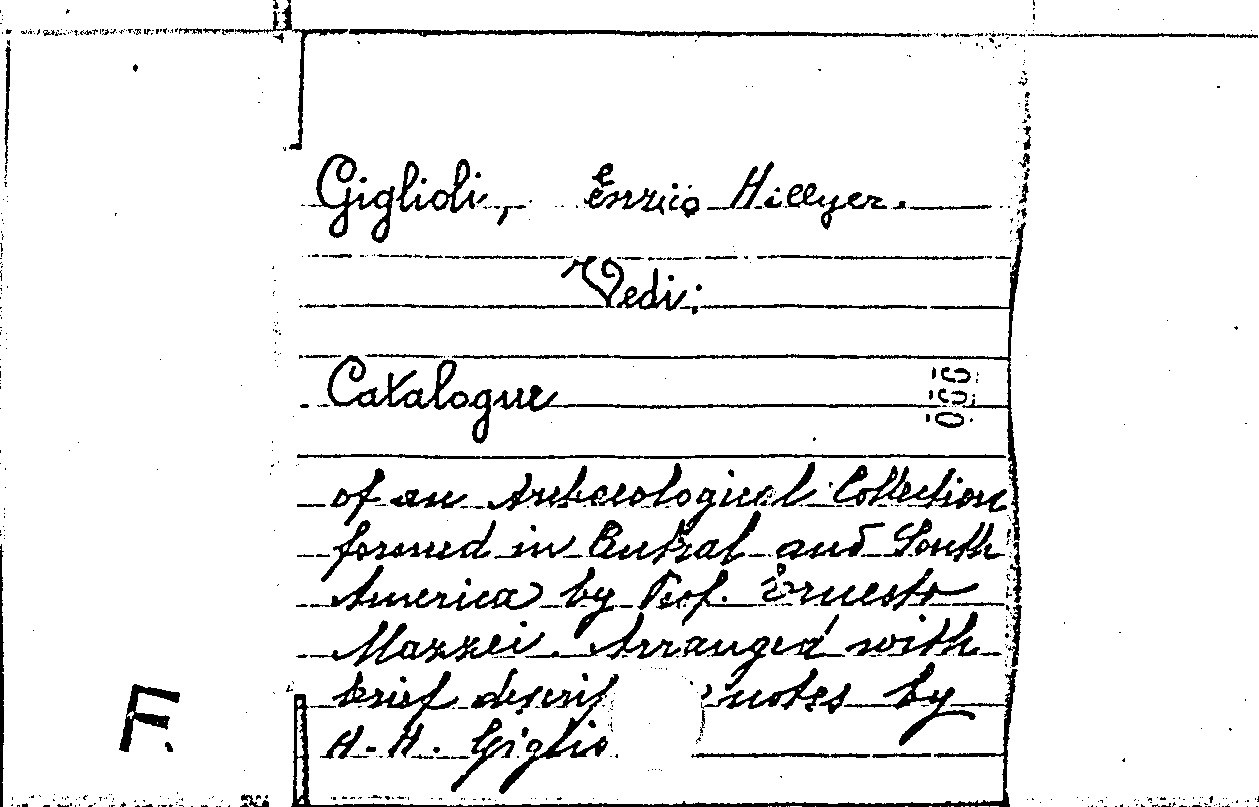 Giglioli, Enrico Hillyer.
Vedi:
Catalogue
of an Archaeological Collection
formed in Central and South
America by Prof. Ernesto
Mazzei. Arranged with
brief descrip notes by
H. H. Giglio
F.